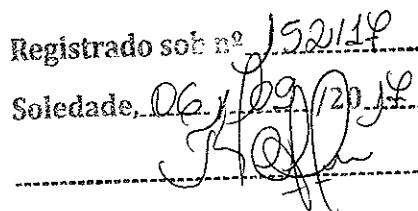 Registrado sob nº 152/17
Soledade, 06/09/2017